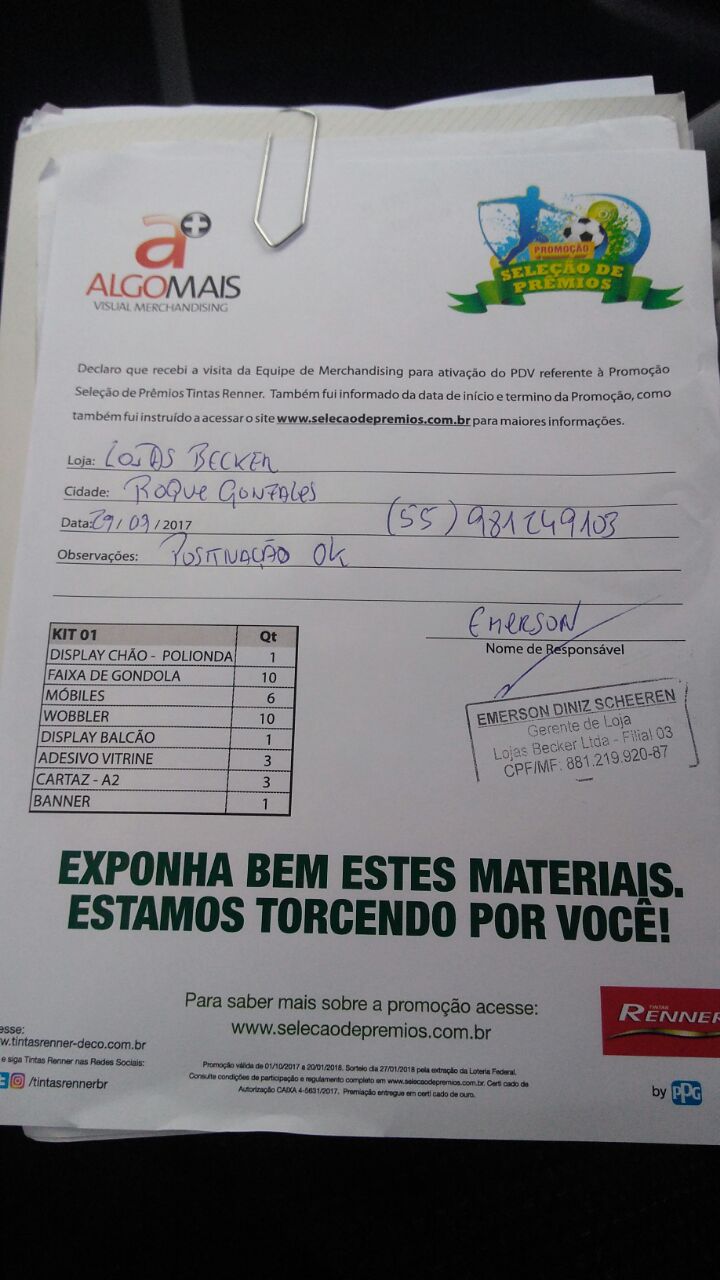 a+
ALGOMAIS
VISUAL MERCHANDISING
PROMOÇÃO
SELEÇÃO DE
PRÊMIOS
Declaro que recebi a visita da Equipe de Merchandising para ativação do PDV referente à Promoção
Seleção de Prêmios Tintas Renner. Também fui informado da data de início e termino da Promoção, como
também fui instruído a acessar o site www.selecaodepremios.com.br para maiores informações.
Loja: LOJAS BECKER
Cidade: ROQUE GONZALES
Data: 29/09/2017 (55) 981249103
Observações: POSITIVAÇÃO OK
EMERSON
Nome de Responsável
KIT 01 Qt
DISPLAY CHÃO - POLIONDA 1
FAIXA DE GONDOLA 10
MÓBILES 6
WOBBLER 10
DISPLAY BALCÃO 1
ADESIVO VITRINE 3
CARTAZ - A2 3
BANNER 1
EMERSON DINIZ SCHEEREN
Gerente de Loja
Lojas Becker Ltda - Filial 03
CPF/MF: 881.219.920-87
EXPONHA BEM ESTES MATERIAIS.
ESTAMOS TORCENDO POR VOCÊ!
Para saber mais sobre a promoção acesse:
www.selecaodepremios.com.br
esse:
w.tintasrenner-deco.com.br
e siga Tintas Renner nas Redes Sociais:
/tintasrennerbr
Promoção válida de 01/10/2017 a 20/01/2018. Sorteio dia 27/01/2018 pela extração da Loteria Federal.
Consulte condições de participação e regulamento completo em www.selecaodepremios.com.br. Certi cado de
Autorização CAIXA 4-5631/2017. Premiação entregue em certi cado de ouro.
TINTAS
RENNER
by PPG